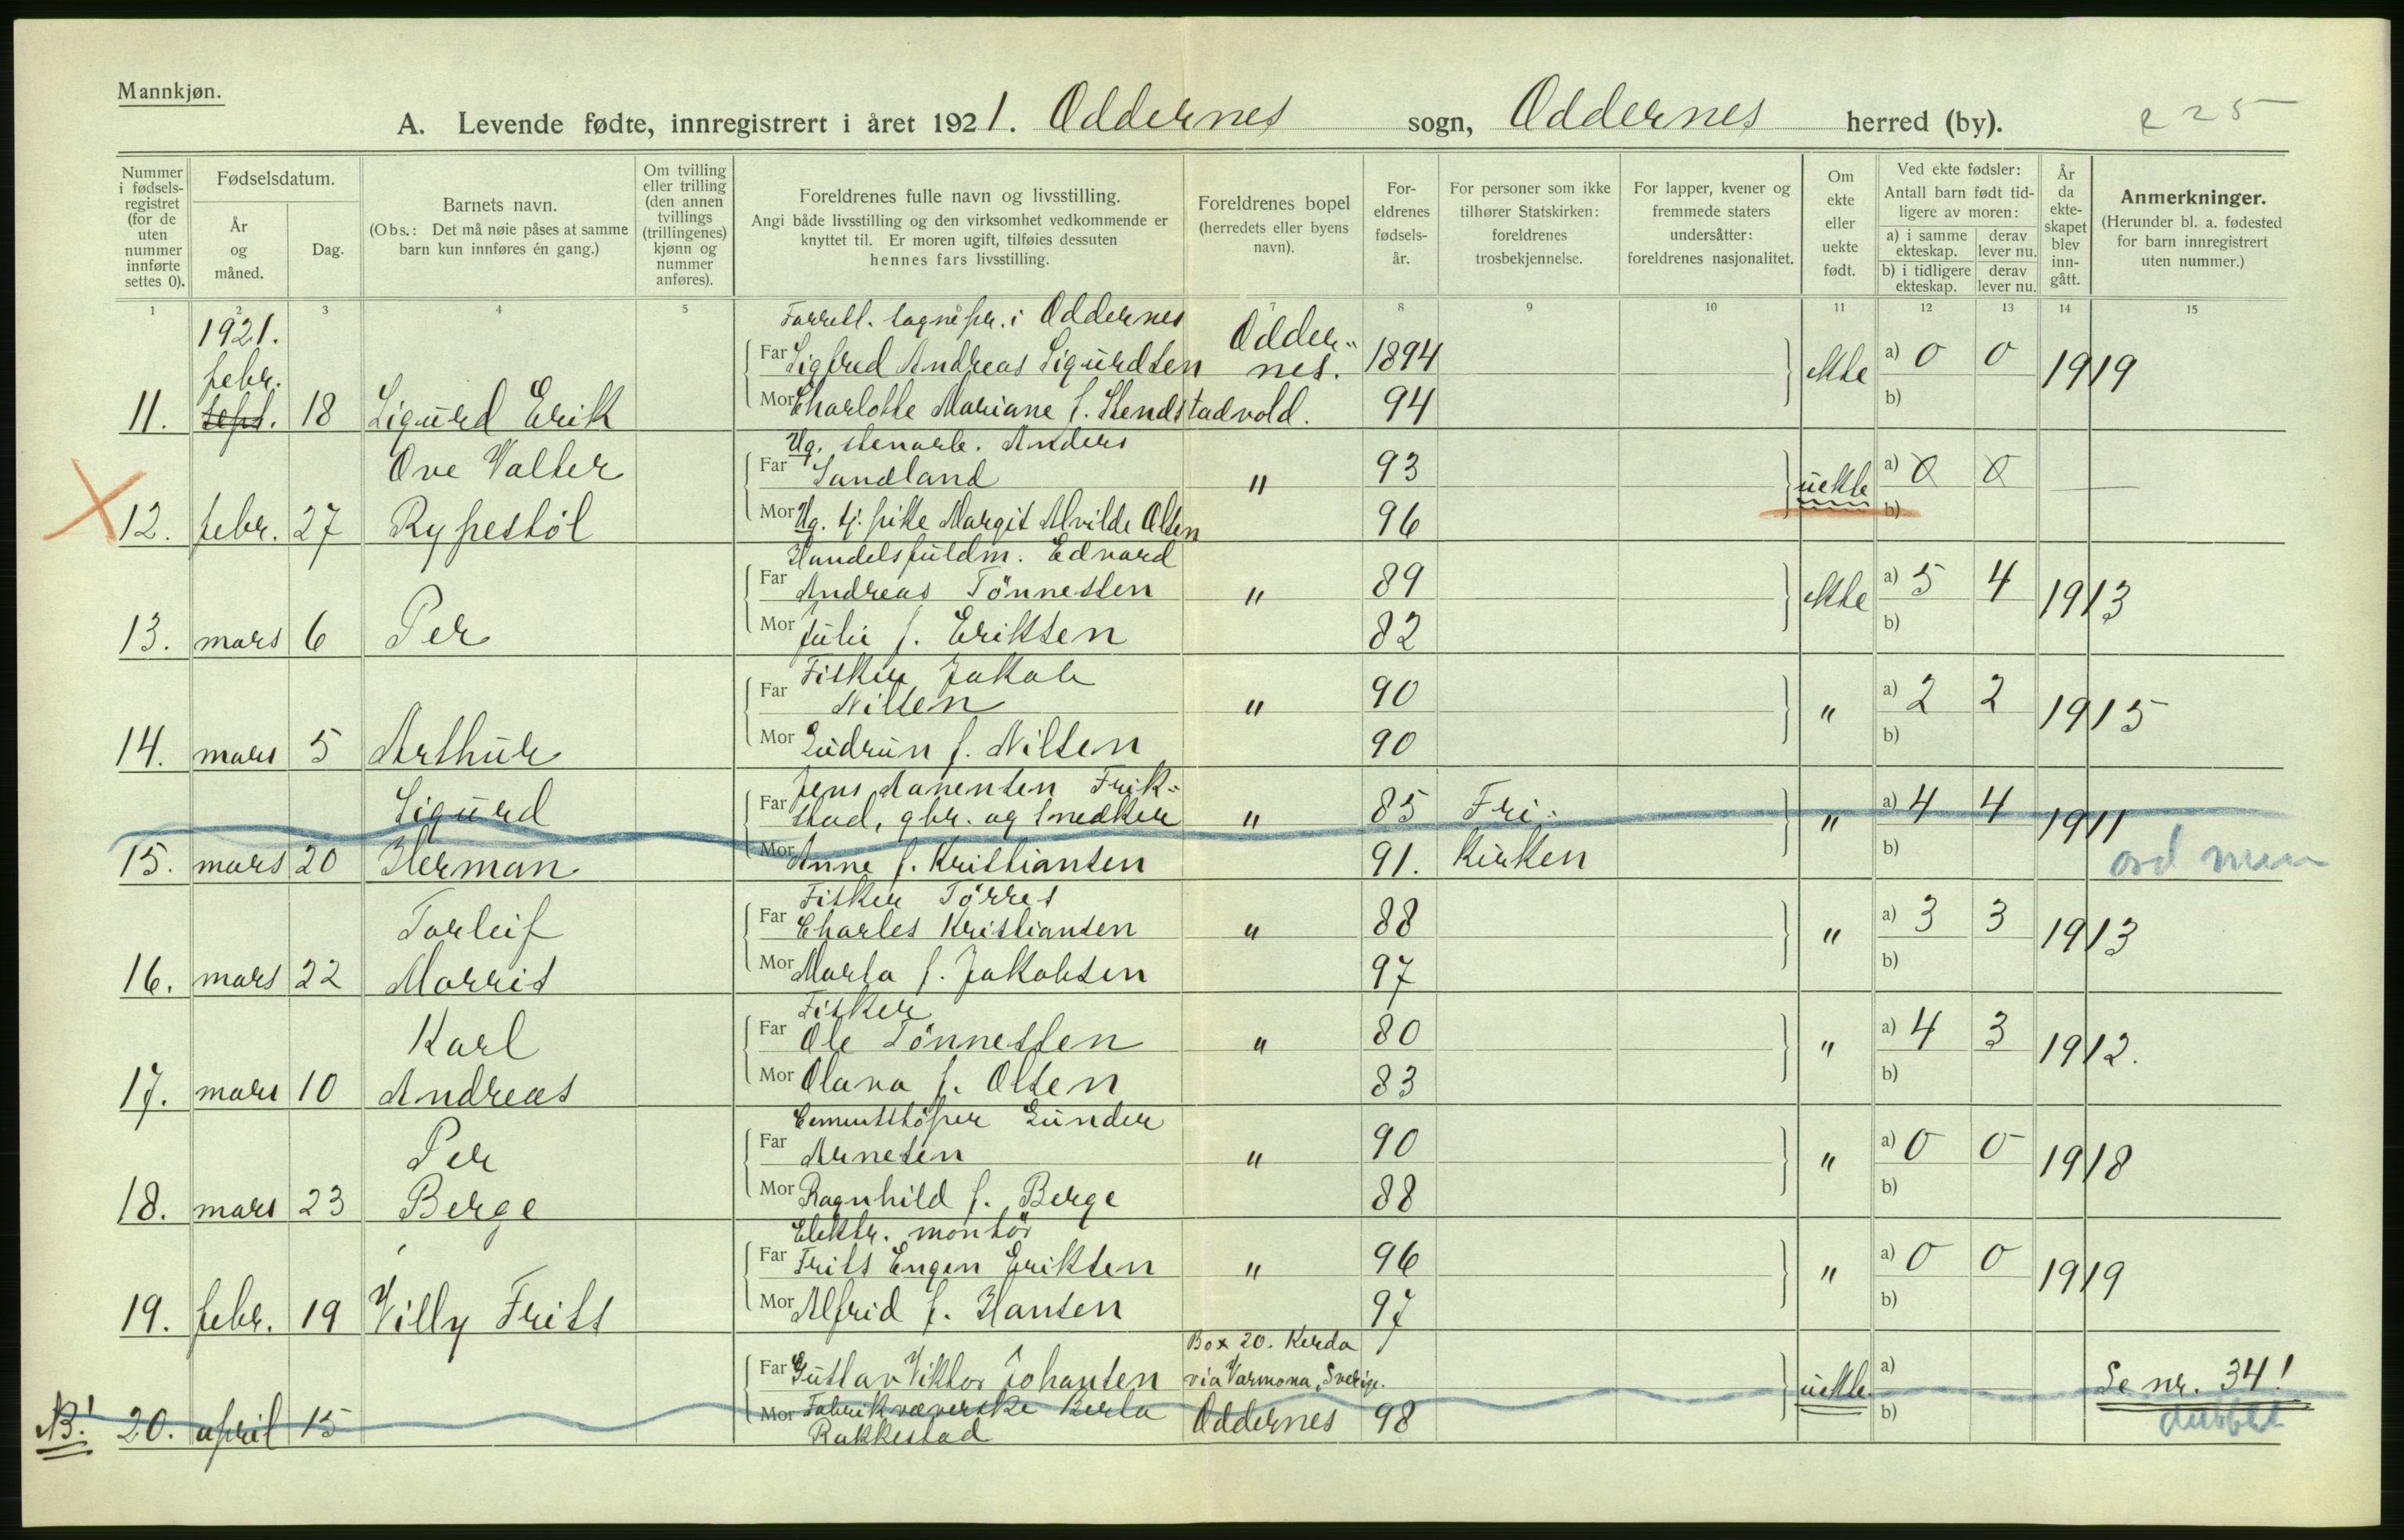 Mannkjøn.
A. Levende fødte, innregistrert i året 1921. Oddernes sogn, Oddernes herred (by).
225
Nummer i fødsels-registret (for de uten nummer innførte settes 0).
Fødselsdatum.
År og måned.
Dag.
Barnets navn.
(Obs.: Det må nøie påses at samme barn kun innføres én gang.)
Om tvilling eller trilling (den annen tvillings (trillingenes) kjønn og nummer anføres).
Foreldrenes fulle navn og livsstilling.
Angi både livsstilling og den virksomhet vedkommende er knyttet til. Er moren ugift, tilføies dessuten hennes fars livsstilling.
Foreldrenes bopel (herredets eller byens navn).
For-eldrenes fødsels-år.
For personer som ikke tilhører Statskirken: foreldrenes trosbekjennelse.
For lapper, kvener og fremmede staters undersåtter: foreldrenes nasjonalitet.
Om ekte eller uekte født.
Ved ekte fødsler:
Antall barn født tid-ligere av moren:
a) i samme ekteskap.
derav lever nu.
b) i tidligere ekteskap.
derav lever nu.
År da ekte-skapet blev inn-gått.
Anmerkninger.
(Herunder bl. a. fødested for barn innregistrert uten nummer.)
1 2 3 4 5 7 8 9 10 11 12 13 14 15
1921.
11. febr. sept. 18 Sigurd Erik
i Oddernes
Far Sigfred Andreas Sigurdsen Odder-nes. 1894
Mor Charlotte Mariane f. Stendstadvold. 94
ekte a) 0 0 b) 1919
12. febr. 27 Ove Valter Rypestöl
Ug. stenarb. Anders
Far Sandland " 93
Mor Ug. tj. pike Margit Alvilde Olsen 96
uekte a) 0 0 b) —
13. mars 6 Per
Handelsfuldm. Edvard
Far Andreas Tönnessen " 89
Mor Julie f. Eriksen 82
ekte a) 5 4 b) 1913
14. mars 5 Arthur
Fisker Jakob
Far Nilsen " 90
Mor Gudrun f. Nilsen 90
" a) 2 2 b) 1915
15. mars 20 Sigurd Herman
Jens Aanensen Frik-
Far stad, gbr. og snedker " 85 Fri-
Mor Anne f. Kristiansen 91. kirken
" a) 4 4 b) 1911
16. mars 22 Torleif Morris
Fisker Törres
Far Charles Kristiansen " 88
Mor Marta f. Jakobsen 97
" a) 3 3 b) 1913
17. mars 10 Karl Andreas
Fisker
Far Ole Tönnessen " 80
Mor Olava f. Olsen 83
" a) 4 3 b) 1912.
18. mars 23 Per Berge
Cementstöper Gunder
Far Arnesen " 90
Mor Ragnhild f. Berge 88
" a) 0 0 b) 1918
19. febr. 19 Villy Frits
Elektr. montör
Far Frits Engen Eriksen " 96
Mor Alfrid f. Hansen 97
" a) 0 0 b) 1919
NB! 20. april 15
Box 20. Kerda
Far Gustav Viktor Johansen via Varmona, Sverige.
Mor Fabrikvæverske Berta Rakkestad Oddernes 98
uekte a) b) Se nr. 34!
dubblet